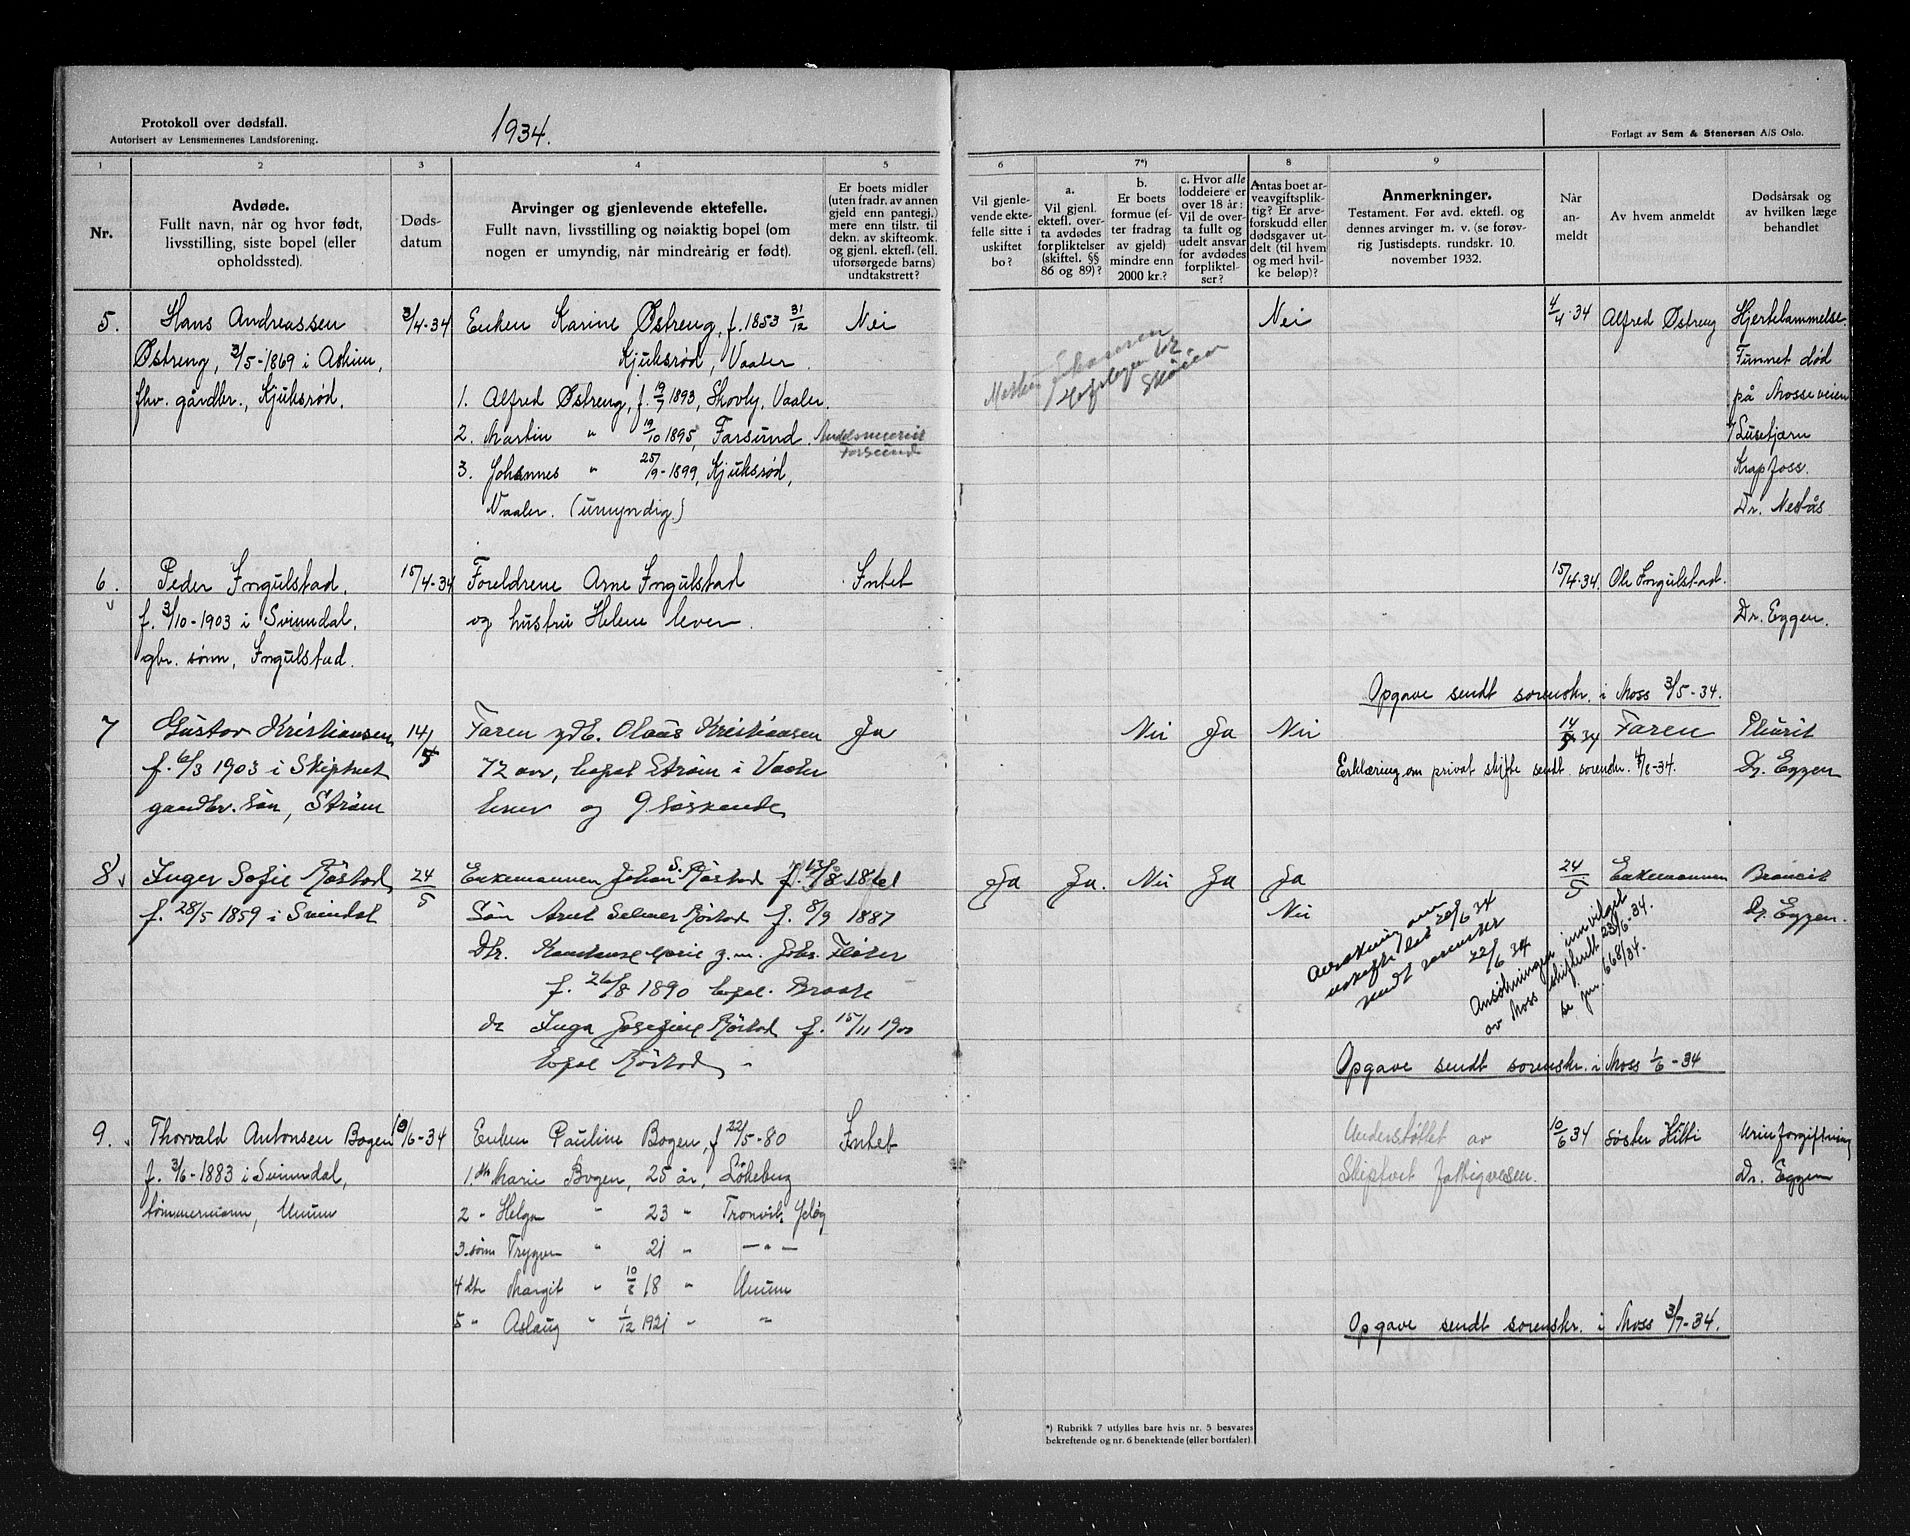 Protokoll over dødsfall.
Autorisert av Lensmennenes Landsforening.
1934.
Forlagt av Sem & Stenersen A/S Oslo.
1 2 3 4 5 6 7*) 8 9
Nr.
Avdøde.
Fullt navn, når og hvor født,
livsstilling, siste bopel (eller
opholdssted).
Døds-
datum
Arvinger og gjenlevende ektefelle.
Fullt navn, livsstilling og nøiaktig bopel (om
nogen er umyndig, når mindreårig er født).
Er boets midler
(uten fradr. av annen
gjeld enn pantegj.)
mere enn tilstr. til
dekn. av skifteomk.
og gjenl. ektefl. (ell.
uforsørgede barns)
undtakstrett?
Vil gjenle-
vende ekte-
felle sitte i
uskiftet
bo?
a.
Vil gjenl.
ektefl. over-
ta avdødes
forpliktelser
(skiftel. §§
86 og 89)?
b.
Er boets
formue (ef-
ter fradrag
av gjeld)
mindre enn
2000 kr.?
c. Hvor alle
loddeiere er
over 18 år:
Vil de over-
ta fullt og
udelt ansvar
for avdødes
forpliktel-
ser?
Antas boet ar-
veavgiftsplik-
tig? Er arve-
forskudd eller
dødsgaver ut-
delt (til hvem
og med hvil-
ke beløp)?
Anmerkninger.
Testament. Før avd. ektefl. og
dennes arvinger m. v. (se forøv-
rig Justisdepts. rundskr. 10.
november 1932.
Når
an-
meldt
Av hvem anmeldt
Dødsårsak og
av hvilken læge
behandlet
5.
Hans Andreassen
Østreng, 3/5-1869 i Askim,
fhv. gårdbr., Kjuksrød.
3/4-34
Enken Karine Østreng, f. 1853 31/12
Kjuksrød, Vaaler.
1. Alfred Østreng, f. 19/7 1893, Skovly, Vaaler.
2. Martin " 19/10 1895, Farsund.
3. Johannes " 25/9-1899, Kjuksrød,
Vaaler. (umyndig.)
Nei
Farsund
Nei
4/4-34
Alfred Østreng
Hjertelammelse.
Funnet død
på Mosseveien
v/Lusefjern
Krapfoss.
Dr. Nestås
6.
Peder Ingulstad.
f. 3/10-1903 i Svinndal,
gbr. sønn, Ingulstad.
15/4-34
Foreldrene Arne Ingulstad
og hustru Helene lever.
Intet
15/4-34.
Ole Ingulstad.
Dr. Eggen.
Opgave sendt sorenskr. i Moss 3/5-34.
7
Gustav Kristiansen
f. 6/3 1903 i Skiptvet
gaardbr. søn, Strøm
14/5
Faren gdb. Olaus Kristiansen
72 aar, bopal Strøm i Vaaler
lever og 9 søskende
Ja
Nei Ja Nei
14/5 34
Faren
Pleurit
Dr. Eggen
Erklæring om privat skifte sendt sorenskr. 4/8-34.
8
Inger Sofie Røstad
f. 28/5 1859 i Svindal
24/5
Enkemannen Johan S. Røstad f. 13/8 1861
Søn Arnt Selmer Røstad f. 8/9 1887
Dtr. Konstanse Marie g.m. Johs. Fløter
f. 26/8 1890 bopal. Braate
do Inga Josefine Røstad f. 15/11 1900
bopal Røstad
Ja Ja. Nei Ja Ja
Nei
24/5
Enkemannen
Broncit
Dr. Eggen.
22/6 34
Ansøkningen innvilget
av Moss skifterett 23/6-34.
se jnr. 668/34.
Opgave sendt sorenskr. i Moss 1/6-34
9.
Thorvald Antonsen Bogen
f. 3/6-1883 i Svinndal,
tømmermann, Unum
10/6-34
Enken Pauline Bogen, f 22/5-80
1. dtr Marie Bogen, 25 år, Lökeberg
2 " Helga " 23 " Tronvik, Jeløy
3. sønn Trygve " 21 " — " —
4 dtr Margit " 10/8 18 " Unum
5 " Aslaug " 1/12 1921 " "
Intet
Understøttet av
Skiptvet fattigvesen.
10/6 34
Søster Hitti
Urinforgiftning
Dr. Eggen
Opgave sendt sorenskr. i Moss 3/7-34.
*) Rubrikk 7 utfylles bare hvis nr. 5 besvares
bekreftende og nr. 6 benektende (eller bortfaler)